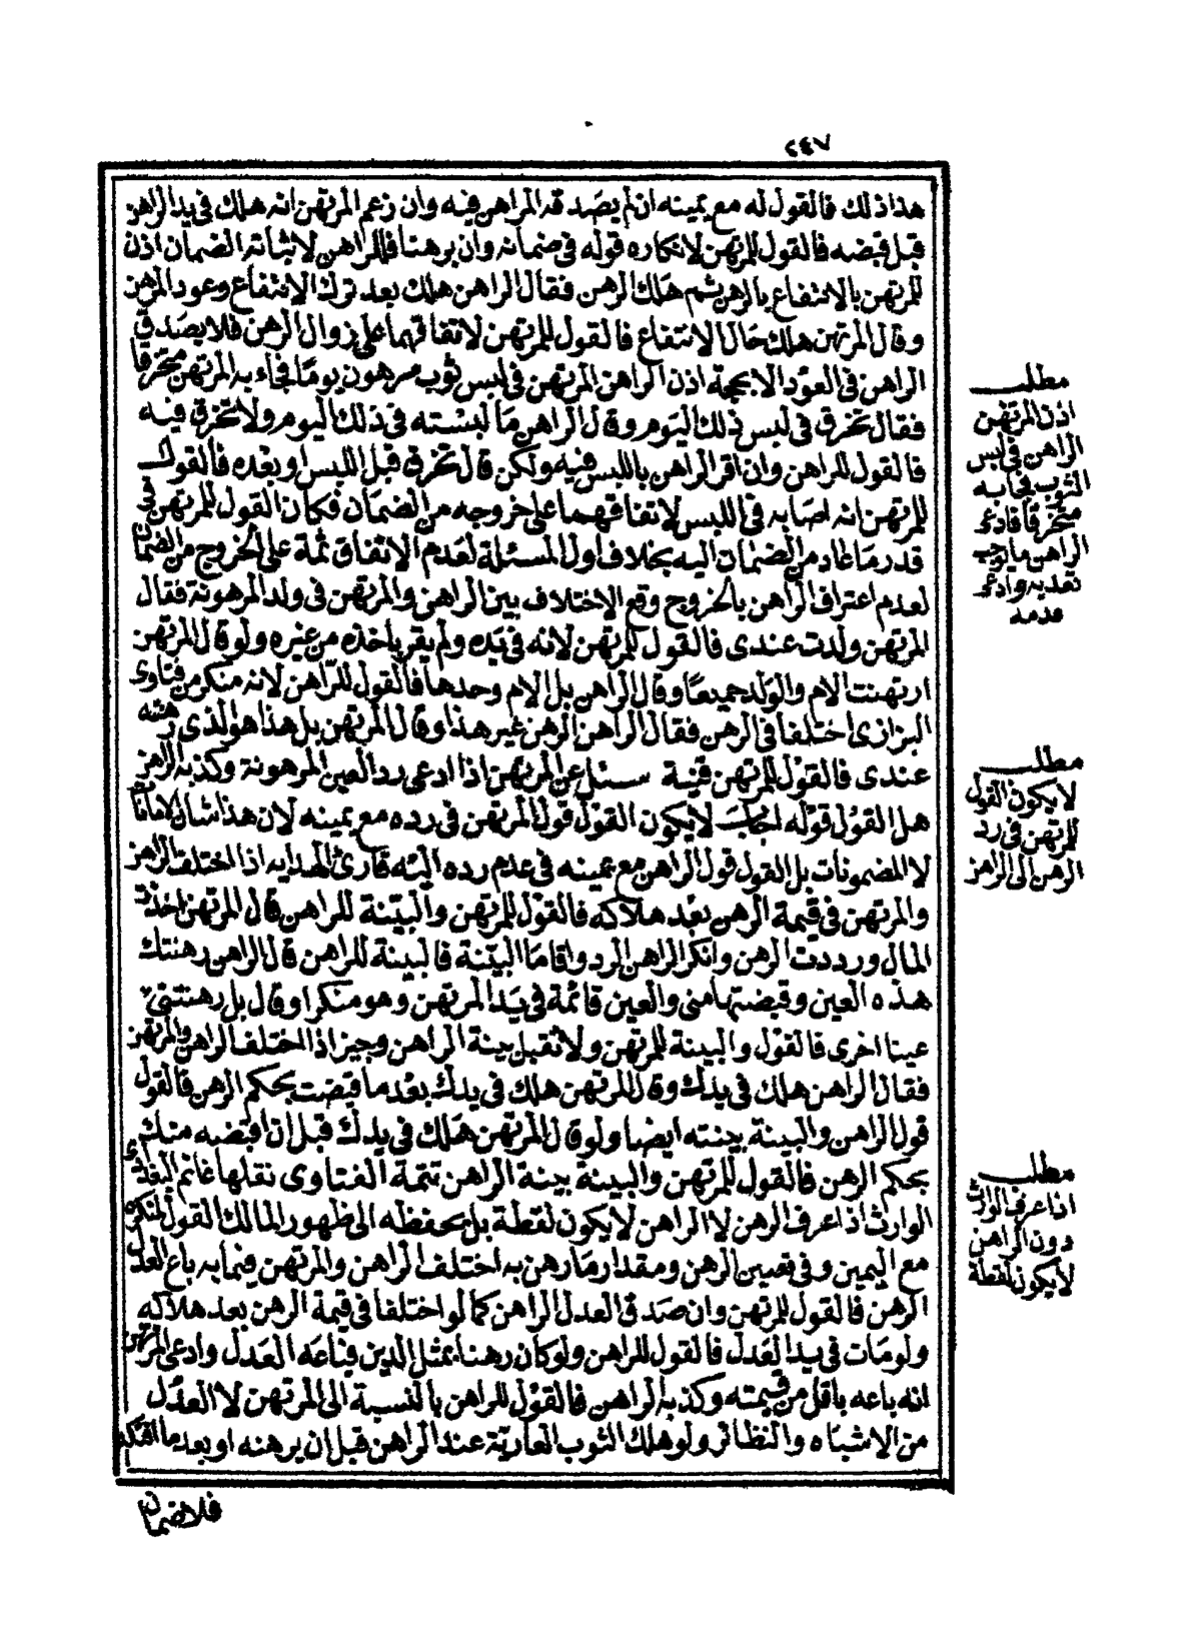 ٢٤٧
هذا ذلك فالقول له مع يمينه ان لم يصدقه الراهن فيه وان زعم المرتهن انه هلك في يد الراهن
قبل قبضه فالقول للمرتهن لانكاره قوله في ضمانه وان برهنا فللراهن لاثباته الضمان اذن
للمرتهن بالانتفاع بالرهن ثم هلك الرهن فقال الراهن هلك بعد ترك الانتفاع وعود الرهن
وقال المرتهن هلك حال الانتفاع فالقول للمرتهن لاتفاقهما على زوال الرهن فلا يصدق
الراهن في العود الا بحجة اذن الراهن المرتهن في لبس ثوب مرهون يوما فجاء به المرتهن متخرقا
فقال تخرق في لبس ذلك اليوم وقال الراهن ما لبسته في ذلك اليوم ولا تخرق فيه
فالقول للراهن وان اقر الراهن باللبس فيه ولكن قال تخرق قبل اللبس او بعده فالقول
للمرتهن انه اصابه في اللبس لاتفاقهما على خروجه من الضمان فكان القول للمرتهن في
قدر ما عاد من الضمان اليه بخلاف اول المسئلة لعدم الاتفاق ثمة على الخروج من الضمان
لعدم اعتراف الراهن بالخروج وقع الاختلاف بين الراهن والمرتهن في ولد المرهونة فقال
المرتهن ولدت عندى فالقول للمرتهن لانه في يده ولم يقر باخذه من غيره ولو قال المرتهن
ارتهنت الام والولد جميعا وقال الراهن بل الام وحدها فالقول للراهن لانه منكر من فتاوى
البزازى اختلفا في الرهن فقال الراهن الرهن غير هذا وقال المرتهن بل هذا هو الذى رهنته
عندى فالقول للمرتهن قنية سئل عن المرتهن اذا ادعى رد العين المرهونة وكذبه الراهن
هل القول قوله اجاب لا يكون القول قول المرتهن في رده مع يمينه لان هذا شان الامانات
لا المضمونات بل القول قول الراهن مع يمينه في عدم رده اليه قارئ الهدايه اذا اختلف الراهن
والمرتهن في قيمة الرهن بعد هلاكه فالقول للمرتهن والبينة للراهن قال المرتهن اخذت
المال ورددت الرهن وانكر الراهن الرد واقاما البينة فالبينة للراهن قال الراهن رهنتك
هذه العين وقبضتها منى والعين قائمة في يد المرتهن وهو منكر او قال بل رهنتنى
عينا اخرى فالقول والبينة للمرتهن ولا تقبل بينة الراهن وجيز اذا اختلف الراهن والمرتهن
فقال الراهن هلك في يدك وقال المرتهن هلك في يدك بعد ما قبضت بحكم الرهن فالقول
قول الراهن والبينة بينته ايضا ولو قال المرتهن هلك في يدك قبل ان اقبضه منك
بحكم الرهن فالقول للمرتهن والبينة بينة الراهن تتمة الفتاوى نقلها غانم البغدادى
الوارث اذا عرف الرهن لا الراهن لا يكون لقطة بل يحفظه الى ظهور المالك القول لمنكره
مع اليمين وفي تعيين الرهن ومقدار ما رهن به اختلف الراهن والمرتهن فيما به باع العدل
الرهن فالقول للمرتهن وان صدق العدل الراهن كما لو اختلفا في قيمة الرهن بعد هلاكه
ولو مات في يد العدل فالقول للراهن ولو كان رهنا بمثل الدين فباعه العدل وادعى المرتهن
انه باعه باقل من قيمته وكذبه الراهن فالقول للراهن بالنسبة الى المرتهن لا العدل
من الاشباه والنظائر ولو هلك الثوب العارية عند الراهن قبل ان يرهنه او بعد ما افتكه
فلا ضمان
مطلب
اذن المرتهن
الراهن في لبس
الثوب فجاء به
متخرقا فادعى
الراهن ما يوجب
تعديه وادعى
عدمه
مطلب
لا يكون القول
للمرتهن في رد
الرهن الى الراهن
مطلب
اذا عرف الوارث
دون الراهن
لا يكون لقطة